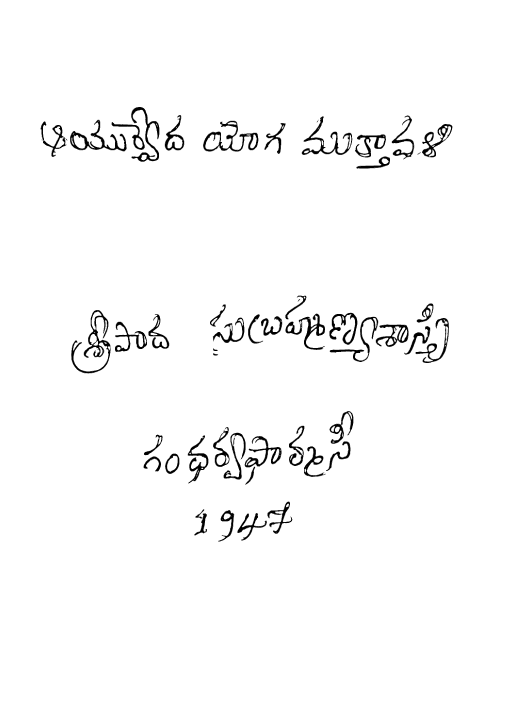 ఆయుర్వేద యోగ ముక్తావళి
శ్రీపాద సుబ్రహ్మణ్యశాస్త్రి
గంధర్వఫార్మసీ
1947